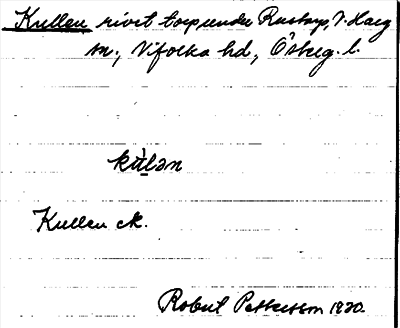 Kullen rivet torp under Rustorp, V. Harg
sn., Vifolka hd, Österg. l.
kùlən
Kullen ek.
Robert Pettersson 1920.